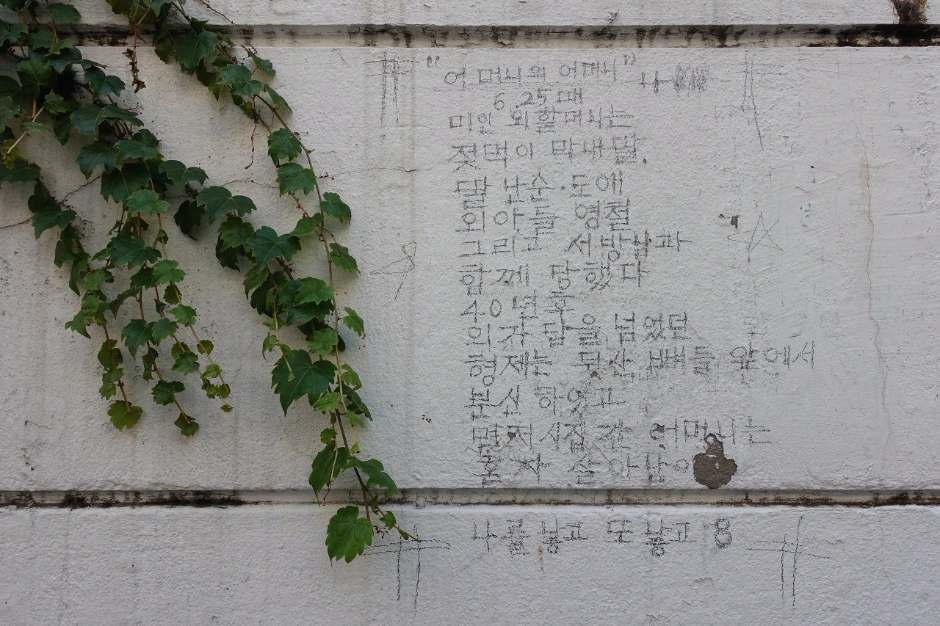 "어머니의 어머니"
6.25때
미인 외할머니는
젖먹이 막내딸,
딸 난순·도애
외아들 영철
그리고 서방님과
함께 당했다
40년 후
의자 담을 넘었던
형제는 앞에서
분신 하였고
먼저 시집 간 어머니는
혼자 살아남아
나를 낳고 또 낳고 8